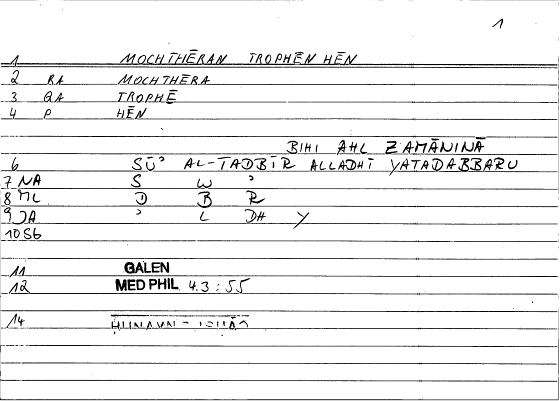 1
1 MOCHTHĒRAN TROPHĒN HĒN
2 RA MOCHTHĒRA
3 QA TROPHĒ
4 P HĒN
BIHI AHL ZAMĀNINĀ
6 SŪʾ AL-TADBĪR ALLADHĪ YATADABBARU
7 NA S W ʾ
8 ML D B R
9 JA ʾ L DH Y
10 SG
11 GALEN
12 MED PHIL 4.3 : 55
14